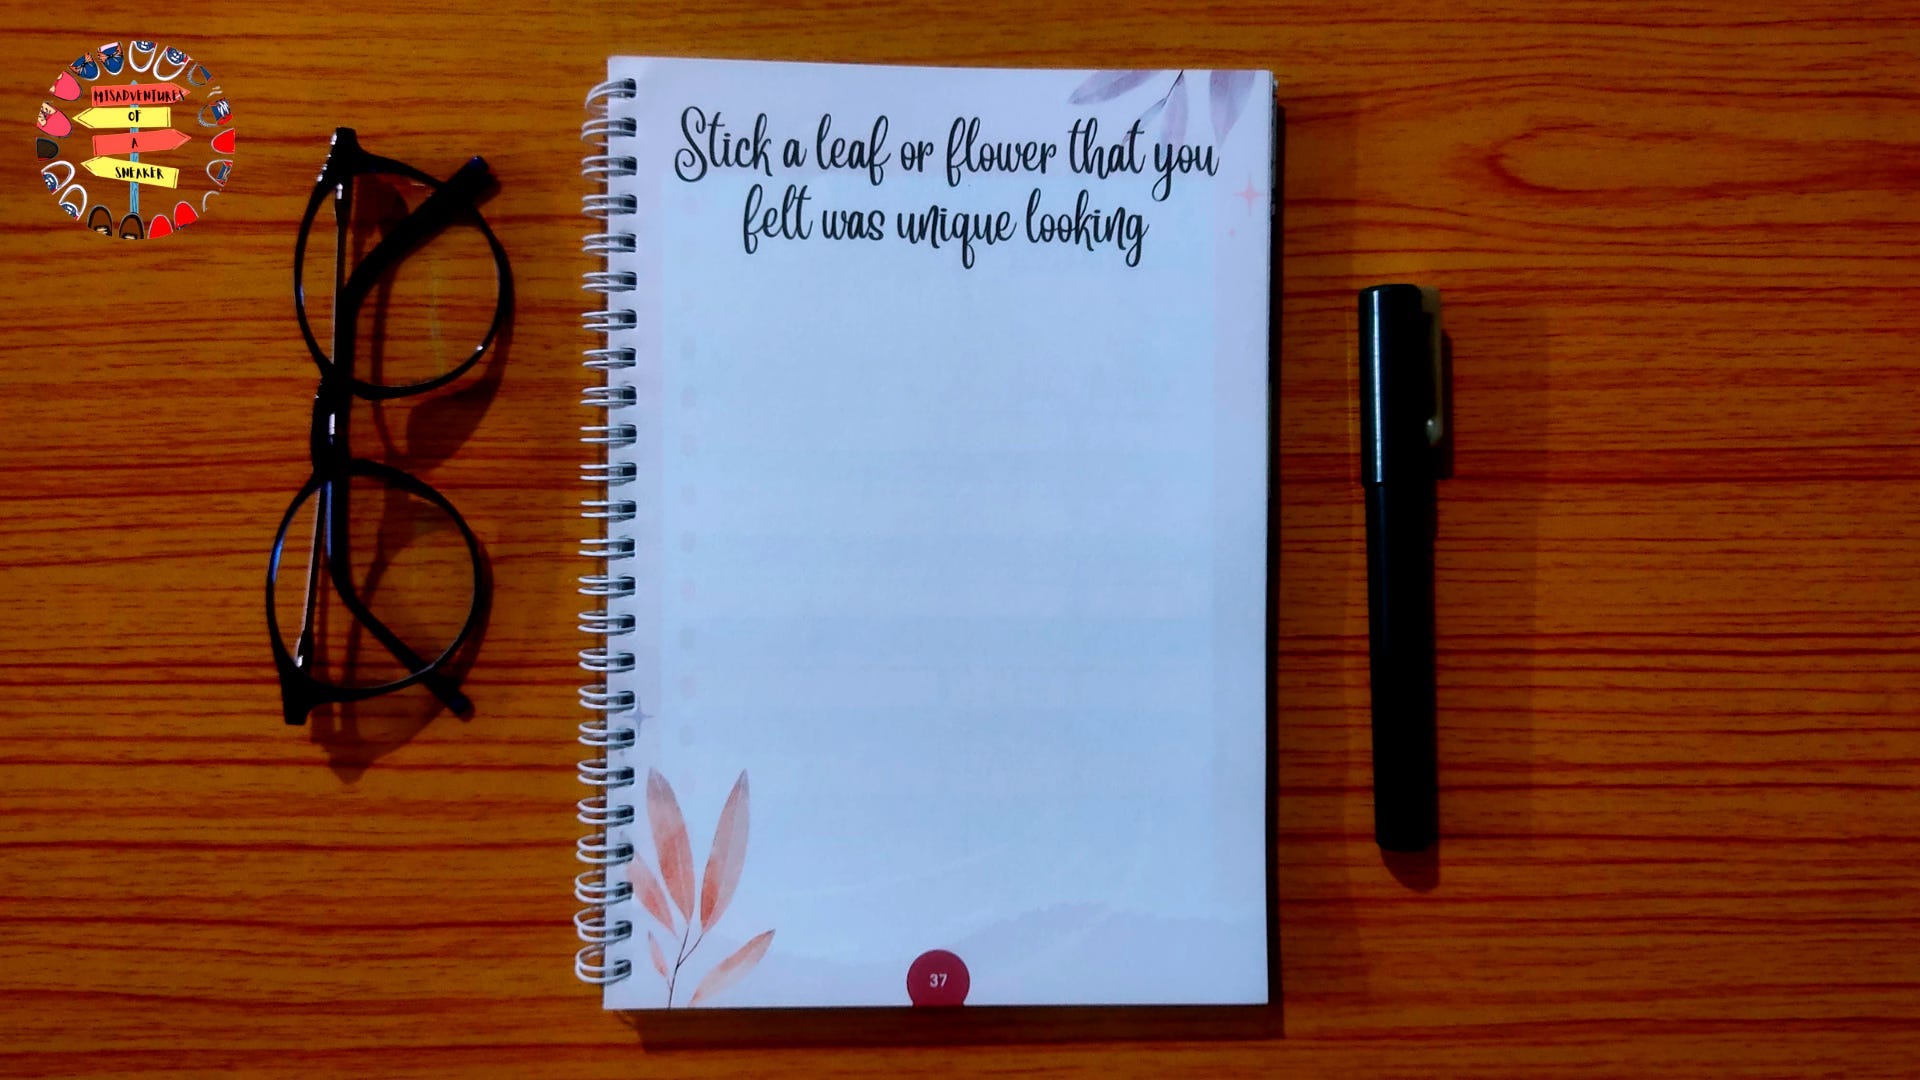 MISADVENTURES
OF
A
SNEAKER
Stick a leaf or flower that you
felt was unique looking
37